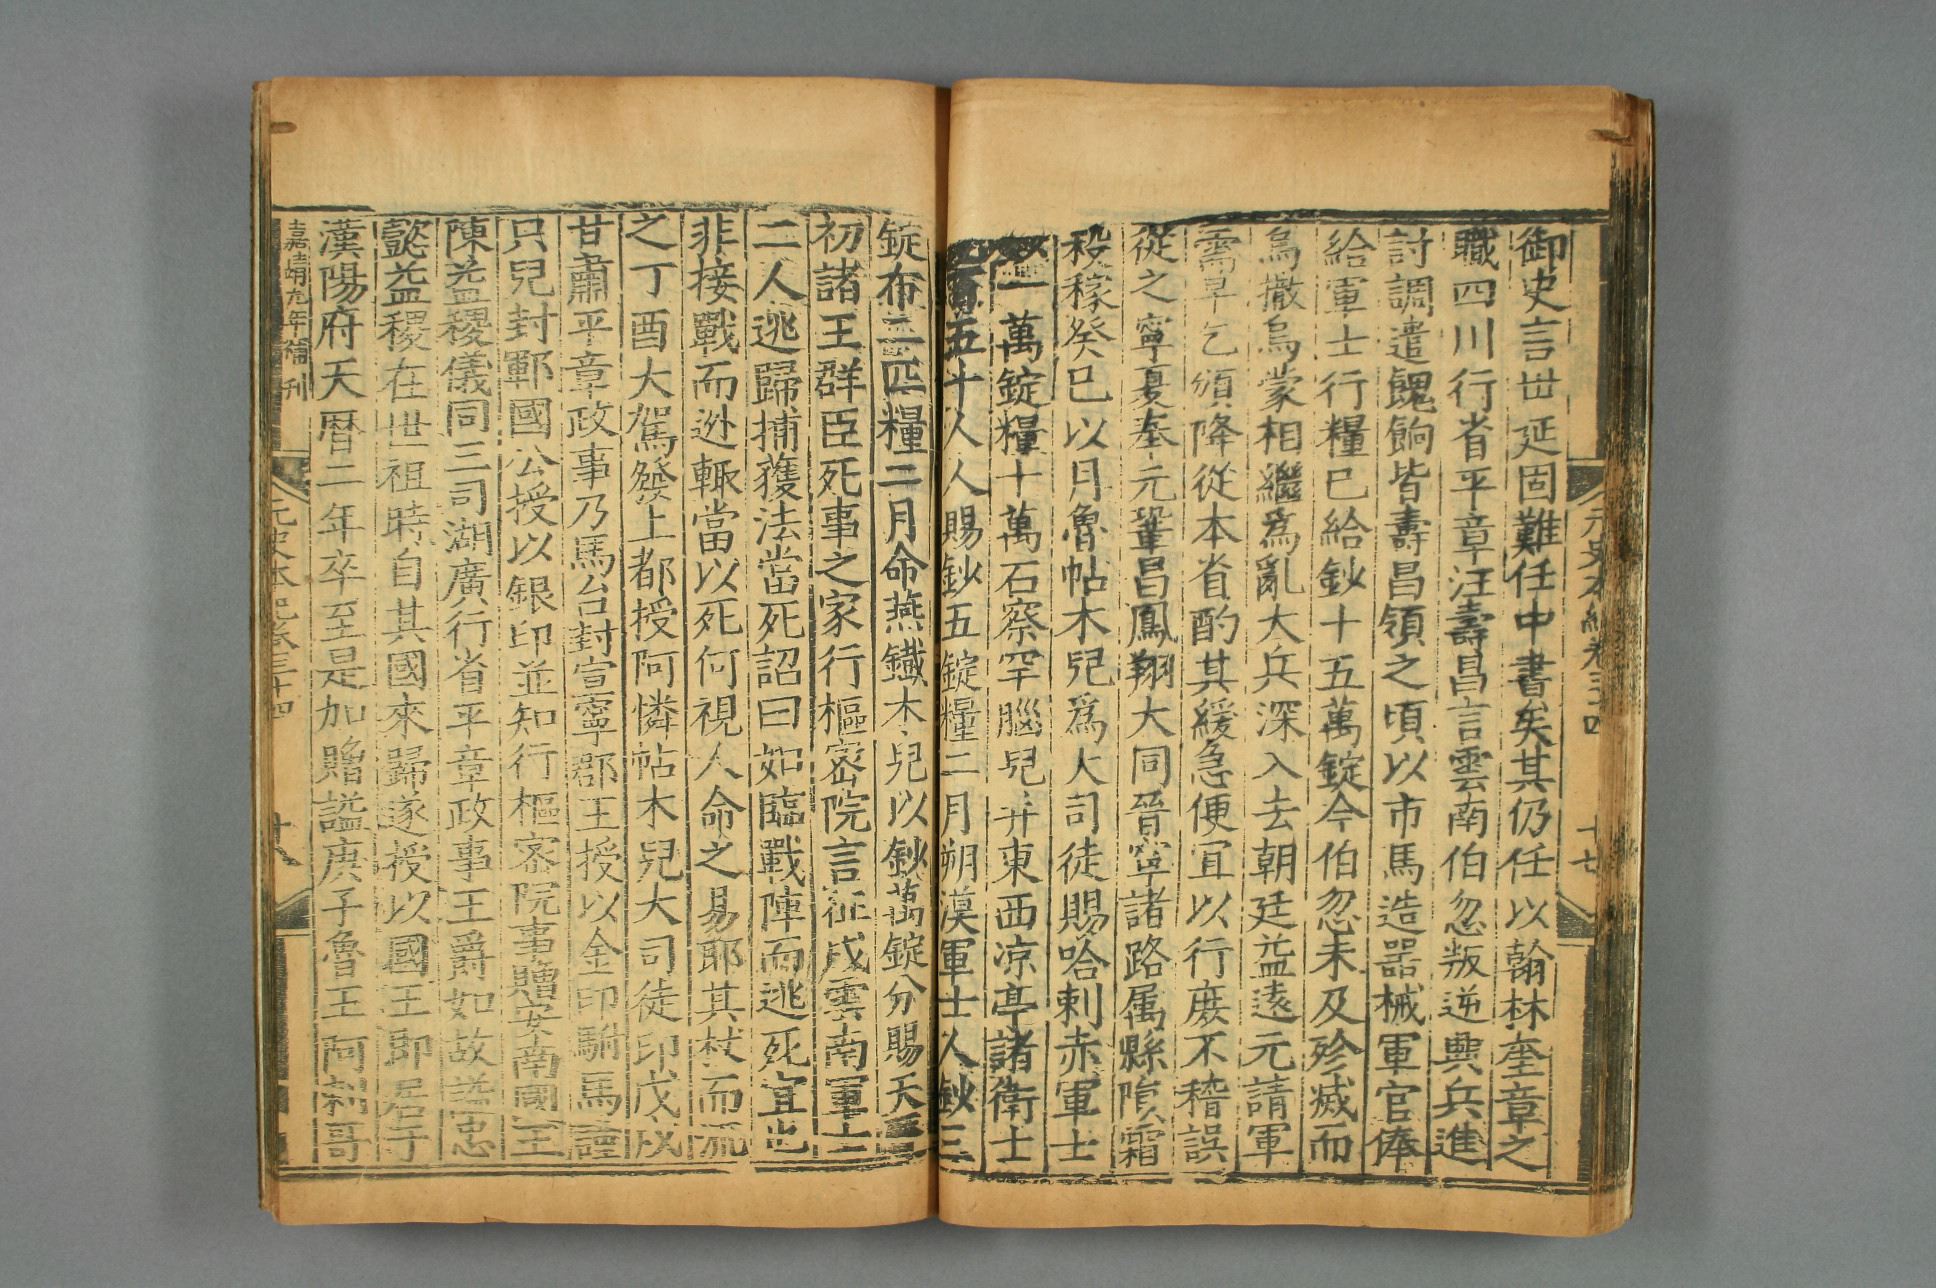 元史本紀卷三十四
十七
御史言世延固難任中書矣其仍任以翰林奎章之
職四川行省平章汪壽昌言雲南伯忽叛逆興兵進
討調遣餽餉皆壽昌領之頃以市馬造器械軍官俸
給軍士行糧已給鈔十五萬錠今伯忽未及殄滅而
烏撒烏蒙相繼爲亂大兵深入去朝廷益遠元請軍
需早乞頒降從本省酌其緩急便宜以行庶不稽誤
從之寧夏奉元鞏昌鳳翔大同晉寧諸路属縣隕霜
殺稼癸巳以月魯帖木兒爲大司徒賜哈剌赤軍士
一萬錠糧十萬石察罕腦兒并東西凉亭諸衛士
百五十人人賜鈔五錠糧二月朔漠軍士人鈔三
錠布二匹糧二月命燕鐵木兒以鈔萬錠分賜天
初諸王群臣死事之家行樞密院言征戍雲南軍士
二人逃歸捕獲法當死詔曰如臨戰陣而逃死宜也
非接戰而逃輙當以死何視人命之易耶其杖而流
之丁酉大駕發上都授阿憐帖木兒大司徒印戊戌
甘肅平章政事乃馬台封宣寧郡王授以金印駙馬謹
只兒封鄆國公授以銀印並知行樞密院事贈安南國王
陳益稷儀同三司湖廣行省平章政事王爵如故謚忠
懿益稷在世祖時自其國來歸遂授以國王即居于
漢陽府天曆二年卒至是加贈謚庚子魯王阿剌哥
嘉靖九年補刊
元史本紀卷三十四
十八